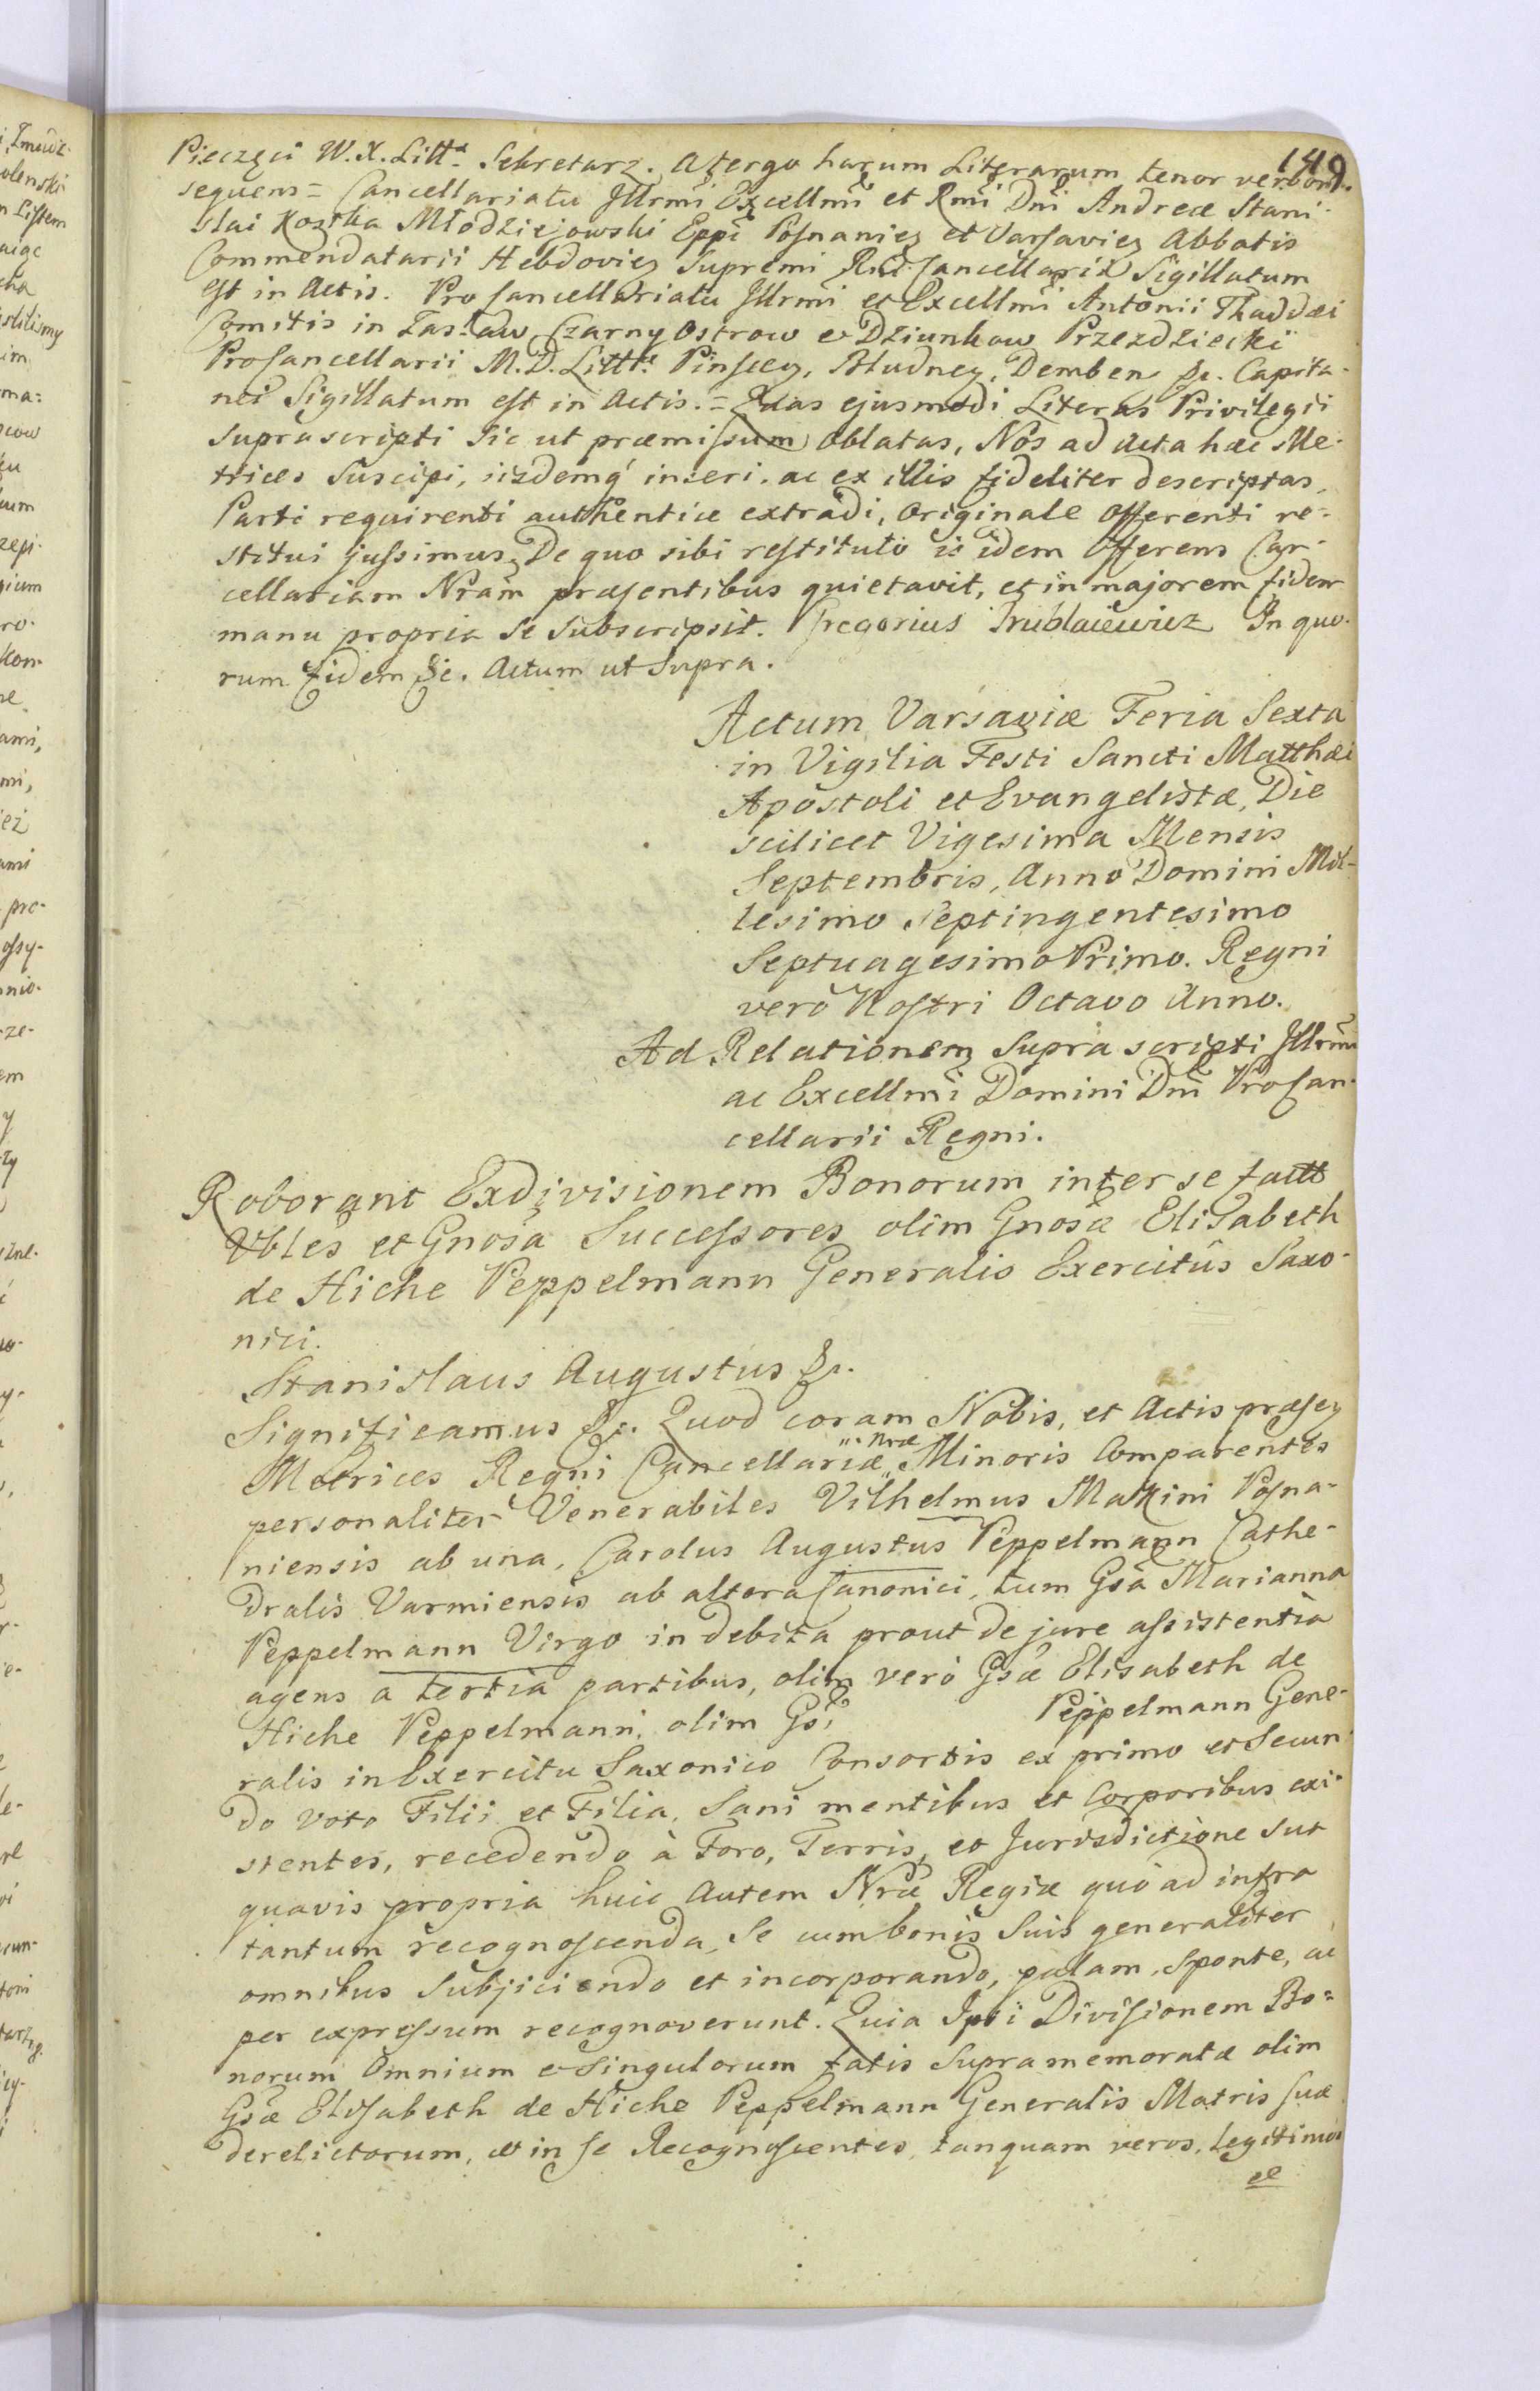 149.
Pieczęci W. X. Littᵃ. Sekretarz. A tergo harum Literarum tenor verborũ
sequens = Cancellariatu Jllrmi Excellmi et Rmi Dni Andreæ Stani-
slai Kostka Młodziejowski Eppi Posnaniey et Varsaviey Abbatis
Commendatarii Hebdoviey Supremi R. Cancellarii Sigillatum
est in Actis. ProCancellariatu Jllrmi et Excellmi Antonii Thaddæi
Comitis in Zasław Czarny Ostrow et Dziunkow Przezdziecki
ProCancellarii M. D. Littᵉ. Pinscey, Błudney, Demben &c. Capita-
nei Sigillatum est in Actis. = Quas ejusmodi Literas Privilegii
suprascripti sic ut præmissum oblatas, Nos ad Acta hæc Me-
trices suscipi, iisdemq́ inseri, ac ex illis fideliter descriptas,
Parti requirenti authentice extradi, Originale Offerenti re-
stitui jussimus, De quo sibi restituto is idem Offerens Can-
cellariam Nram præsentibus quietavit, et in majorem fidem
manu propria se subscripsit. Gregorius Trublaiewicz In quo-
rum fidem &c. Actum ut supra.
Actum Varsaviæ Feria Sexta
in Vigilia Festi Sancti Matthæi
Apostoli et Evangelistæ, Die
scilicet Vigesima Mensis
Septembris, Anno Domini Mil-
lesimo Septingentesimo
Septuagesimo Primo. Regni
verò Nostri Octavo Anno.
Ad Relationem supra scripti Jllrmi
ac Excellmi Domini Dni ProCan-
cellarii Regni.
Roborant Exdivisionem Bonorum inter se fact̃
Vbles et Gnosa Successores olim Gnosæ Elisabeth
de Hiche Peppelmann Generalis Exercitûs Saxo-
nici.
Stanislaus Augustus &c.
Significamus &c. Quod coram Nobis, et Actis præsey
Metrices Regni Cancellariæ Nræ Minoris Comparentes
personaliter Venerabiles Vilhelmus Makini Posna-
niensis ab una, Carolus Augustus Peppelmann Cathe-
dralis Varmiensis ab altera Canonici, tum Gsa Marianna
Peppelmann Virgo in debita prout de jure assistentia
agens a tertia partibus, olim verò Gsæ Elisabeth de
Hiche Peppelmann, olim Gsi Peppelmann Gene-
ralis in Exercitu Saxonico Consortis ex primo et Secun
do voto Filii et Filia, Sani mentibus et Corporibus exi-
stentes, recedendo à Foro, Terris, et Jurisdictione sua
quavis propria huic autem Nræ Regiæ quò ad infra
tantum recognoscenda, Se cum bonis suis generaliter
omnibus subjiciendo et incorporando, palam, sponte, ac
per expressum recognoverunt. Quia Ipsi Divisionem Bo=
norum Omnium et Singulorum fatis supramemoratæ olim
Gsæ Elisabeth de Hiche Peppelmann Generalis Matris suæ
derelictorum, et in se Recognoscentes, tanquam veros, legitimos
et